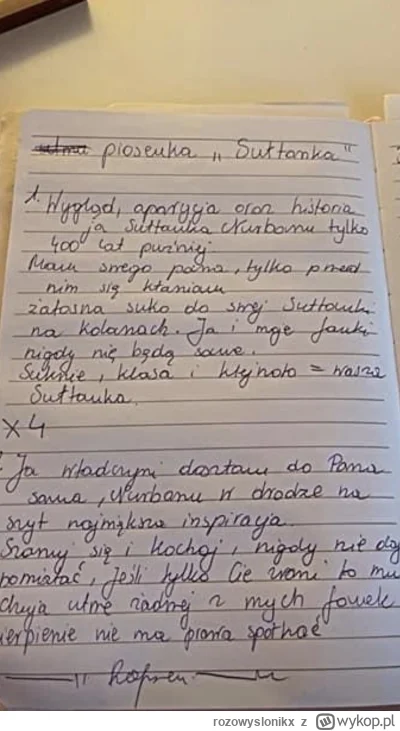 piosenka „Sułtanka"
1. Wygląd, aparycja oraz historia
ja Sułtanka Nurbanu tylko
400 lat puźniej
Mam swego pana, tylko przed
nim się kłaniam
żałosna suko do swej Sułtanki
na kolanach. Ja i moje fanki
nigdy nie będą same.
Suknie, klasa i klejnoty = wasza
Sułtanka.
x4
Ja władczyni dostam do Pana
sama, Nurbanu w drodze na
szyt najmiększa inspiracja.
Szanuj się i kochaj, nigdy nie daj
pomiatać, jeśli tylko Cie zrani to mu
chuja utnę żadnej z mych fanek
cierpienie nie ma prawa spotkać
rozowyslonikx z wykop.pl